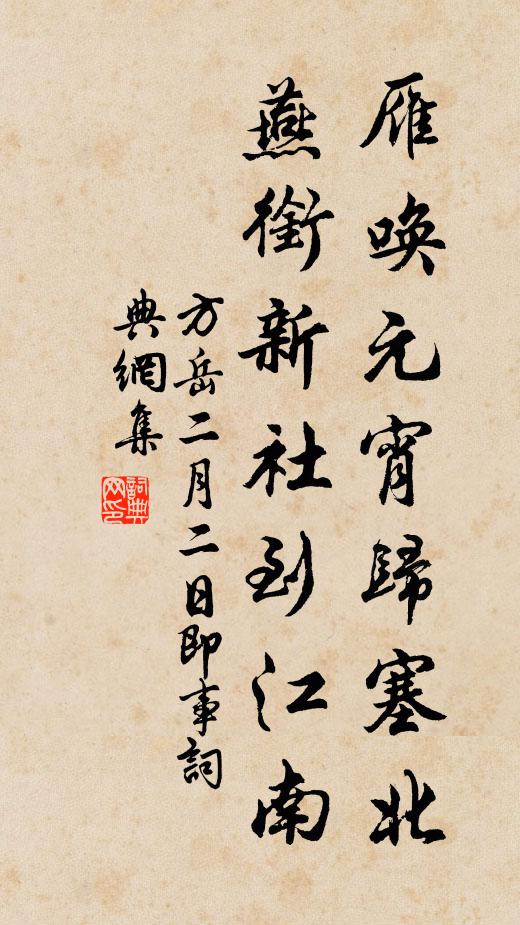 雁喚元宵歸塞北
燕銜新社到江南
方岳二月二日即事詞
典網集
詞典
网印